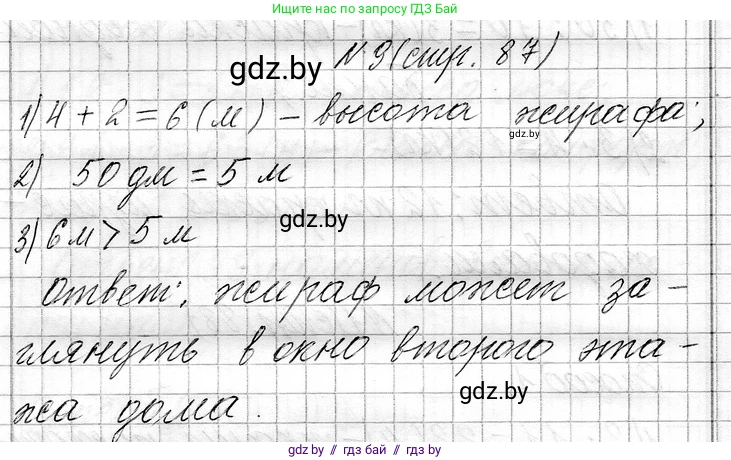 Ищите нас по запросу ГДЗ Бай
gdz.by
№9(стр. 87)
1) 4 + 2 = 6 (м) – высота жирафа;
gdz.by
2) 50 дм = 5 м
gdz.by
3) 6м > 5 м
Ответ: жираф может за-
глянуть в окно второго эта-
gdz.by
жа дома.
gdz.by // гдз бай // gdz.by